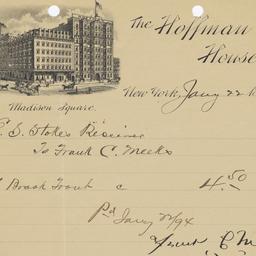 The Hoffman
House
Madison Square.
New York, Jany 22
E. S. Stokes Receiver
To Frank C. Meeks
Brook Trout c 4.50
Pd Jany 22/94